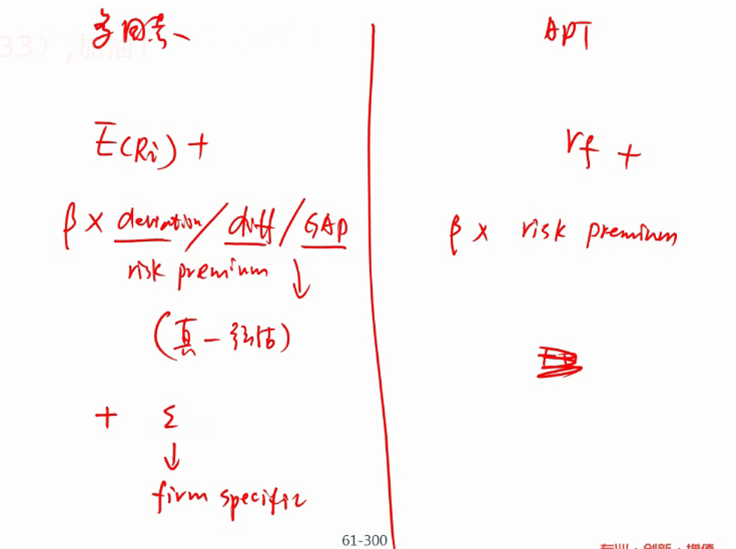 33）,加油！
多因素、
E(Ri) +
β × deviation/diff/GAP
risk premium
↓
(真 - 预估)
+ ε
↓
firm specific
APT
rf +
β × risk premium
61-300
专业·创新·增值